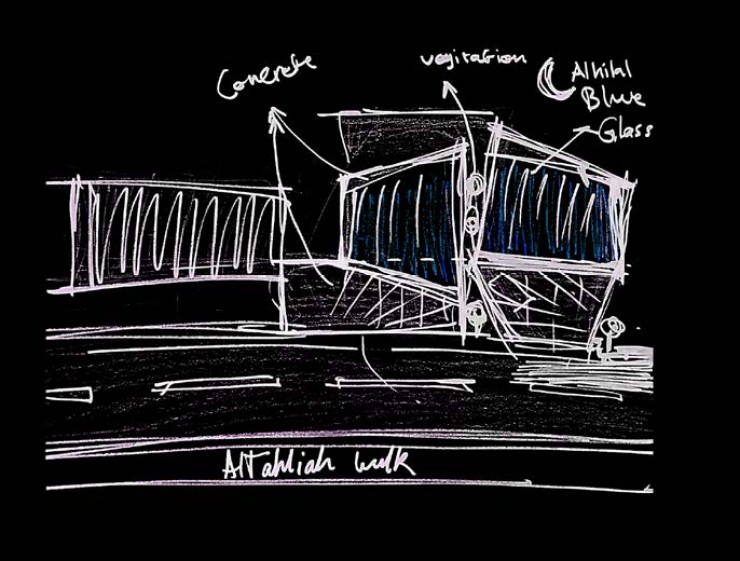 Conerete
vegitation
Alhilal
Blwe
Glass
AlTahliah walk